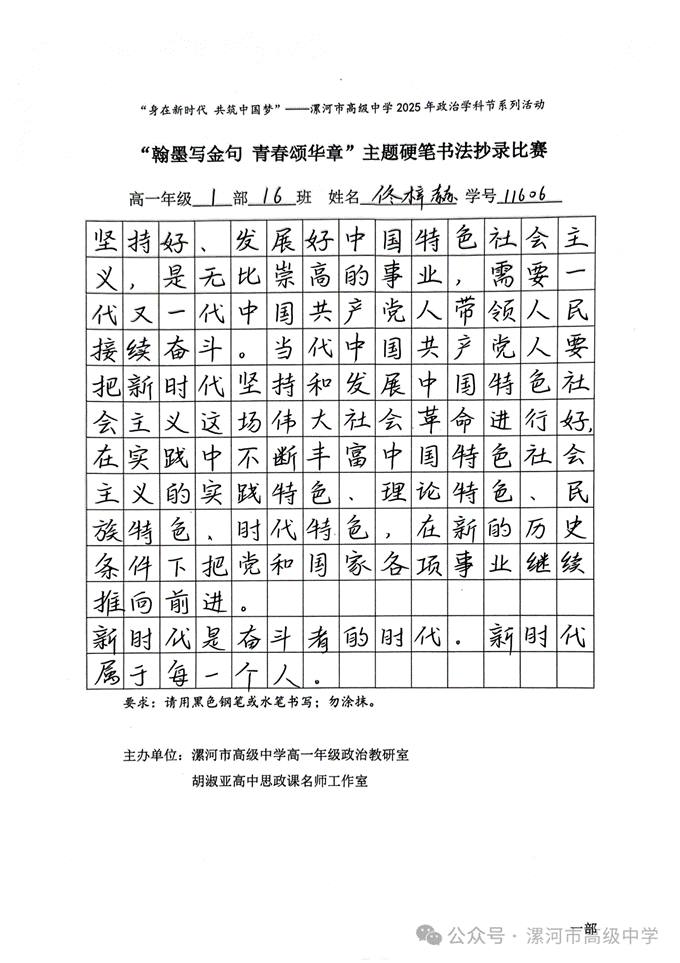 “身在新时代 共筑中国梦”——漯河市高级中学 2025 年政治学科节系列活动
“翰墨写金句 青春颂华章”主题硬笔书法抄录比赛
高一年级 1 部 16 班 姓名 佟梓赫 学号 11606
坚持好、发展好中国特色社会主
义，是无比崇高的事业，需要一
代又一代中国共产党人带领人民
接续奋斗。当代中国共产党人要
把新时代坚持和发展中国特色社
会主义这场伟大社会革命进行好，
在实践中不断丰富中国特色社会
主义的实践特色、理论特色、民
族特色、时代特色，在新的历史
条件下把党和国家各项事业继续
推向前进。
新时代是奋斗者的时代。新时代
属于每一个人。
要求：请用黑色钢笔或水笔书写；勿涂抹。
主办单位：漯河市高级中学高一年级政治教研室
胡淑亚高中思政课名师工作室
一部
公众号·漯河市高级中学